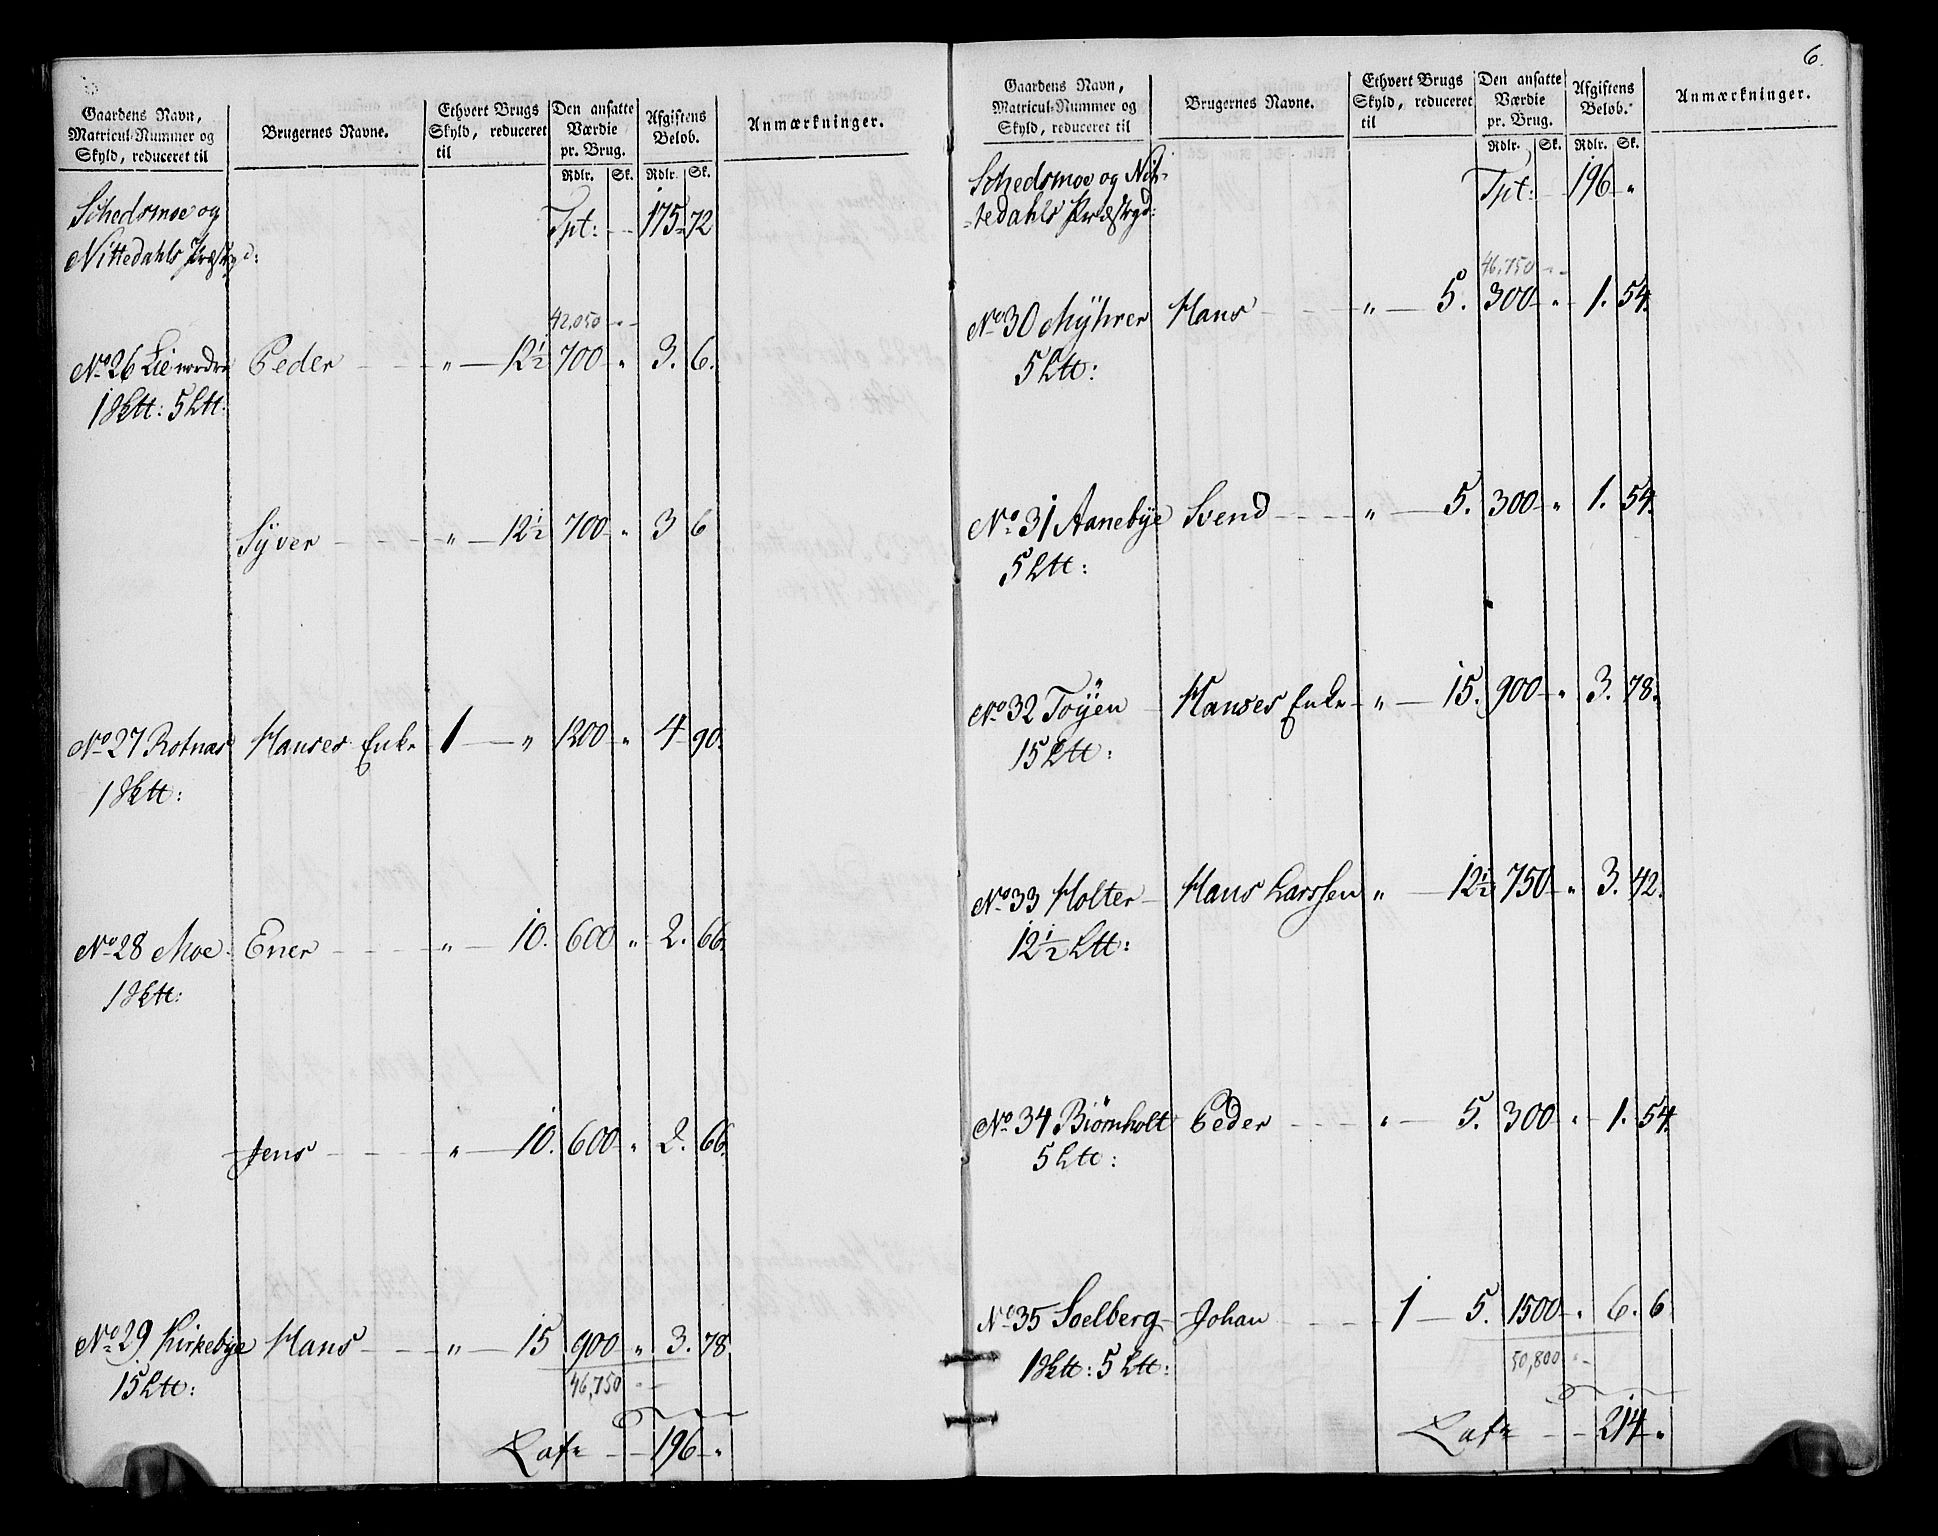 Gaardens Navn,
Matricul-Nummer og
Skyld, reduceret til
Brugernes Navne.
Ethvert Brugs
Skyld, reduceret
til
Den ansatte
Værdie
pr. Brug.
Rdlr. Sk.
Afgiftens
Beløb.
Rdlr. Sk.
Anmærkninger.
Schedsmoe og
Nittedahls Præstegd:
Tpt: 175 72
42,050 " -
No 26 Lie nordre Peder " 12½ 700 " 3. 6.
1 Sktt: 5 Ltt:
Syver " 12½ 700 " 3 6
No 27 Rotnæs Hanses Enke 1 " 1200 " 4 90.
1 Sktt:
No 28 Moe Ener " 10. 600 " 2. 66.
1 Sktt:
Jens " 10. 600 " 2. 66.
No 29 Kirkebye Hans " 15 900 " 3. 78
15 Ltt:
46,750
Lat 196 "
6.
Gaardens Navn,
Matricul-Nummer og
Skyld, reduceret til
Brugernes Navne.
Ethvert Brugs
Skyld, reduceret
til
Den ansatte
Værdie
pr. Brug.
Rdlr. Sk.
Afgiftens
Beløb.
Rdlr. Sk.
Anmærkninger.
Schedsmoe og Nit-
=tedahls Præstegd:
Tpt: 196 "
46,750 " -
No 30 Mÿhrer Hans " 5. 300 " 1. 54.
5 Ltt:
No 31 Aanebye Svend " 5. 300 " 1. 54.
5 Ltt:
No 32 Töyen Hanses Enke " 15. 900 " 3. 78.
15 Ltt:
No 33 Holter Hans Larssen " 12½ 750 " 3. 42.
12½ Ltt:
No 34 Biörnholt Peder " 5. 300 " 1. 54.
5 Ltt:
No 35 Soelberg Johan 1 5. 1500 " 6. 6
1 Sktt: 5 Ltt:
50,800 " -
Lat 214 "